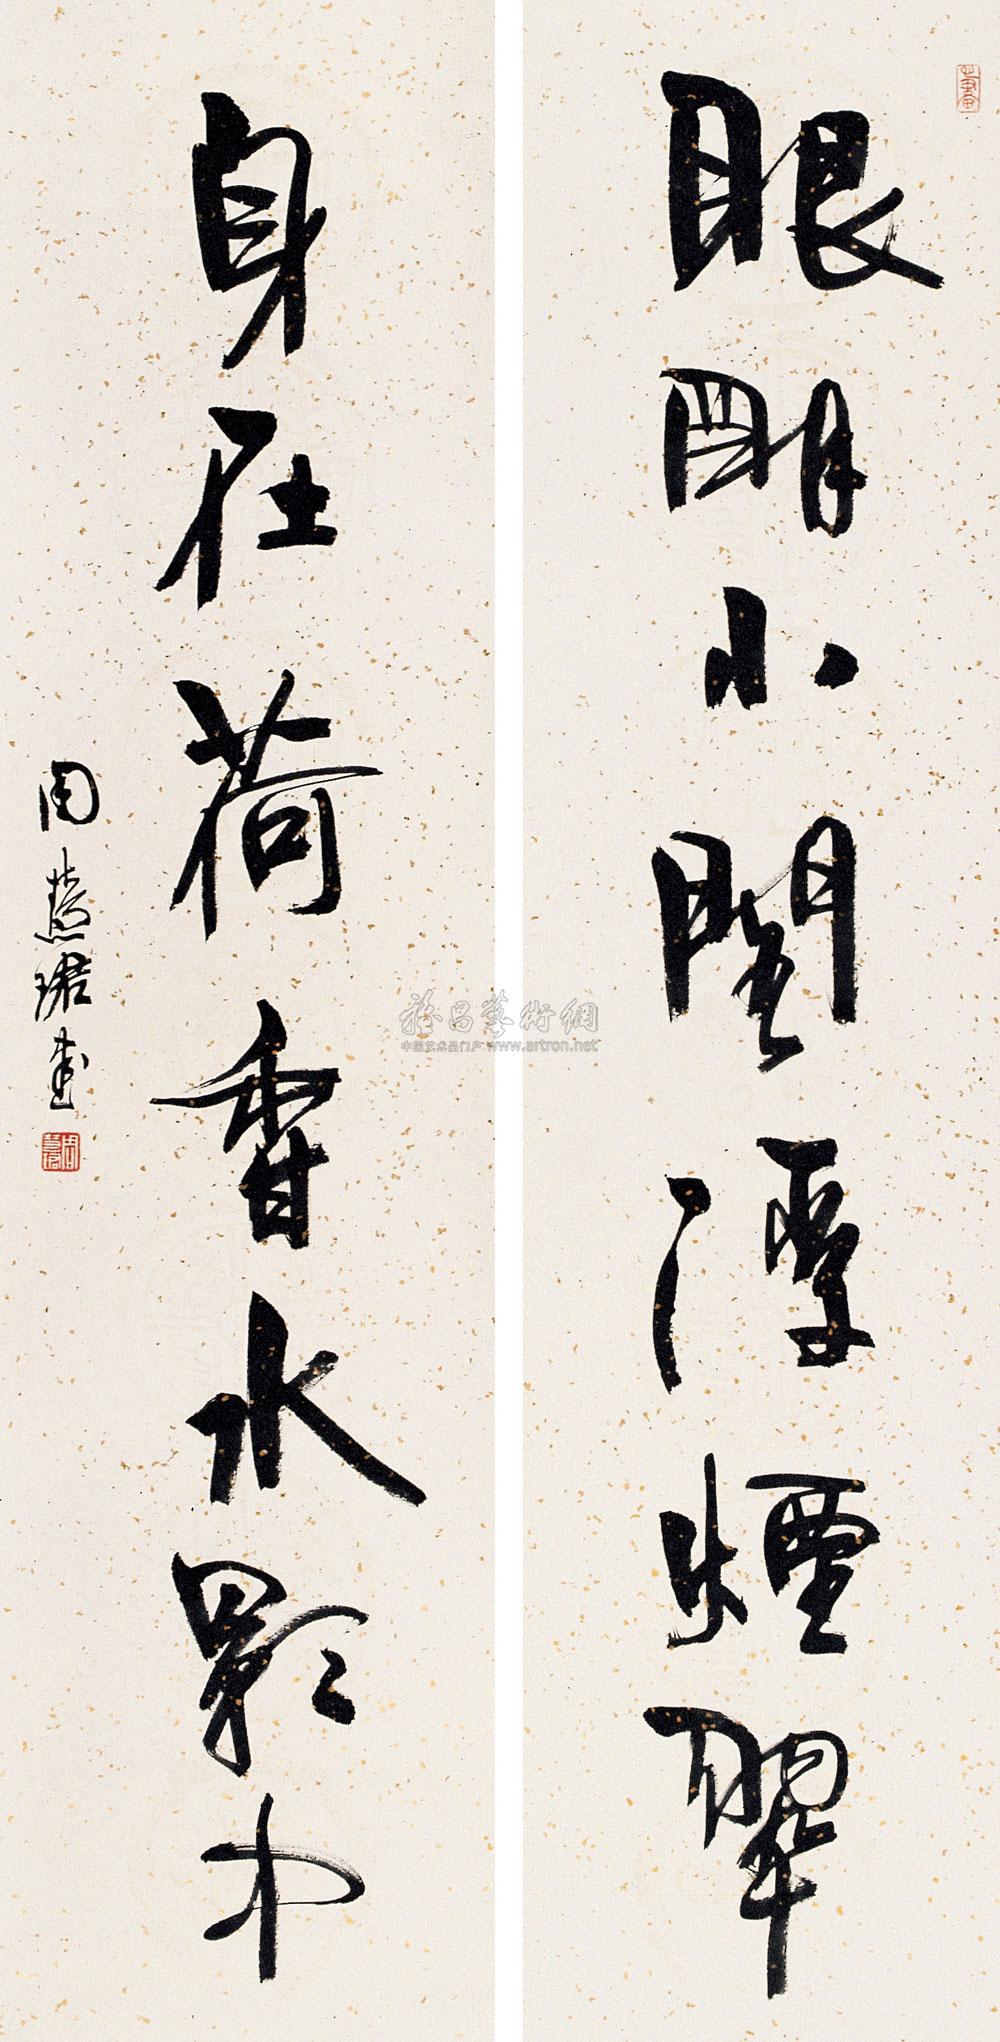 眼明小閣浮煙翠
身在荷香水影中
周慧珺書
雅昌藝術網
中国艺术品门户 www.artron.net